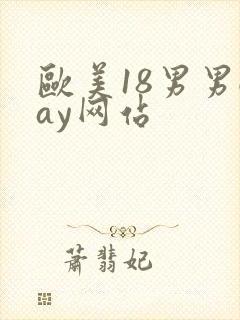 歐美18男男g
ay网佔
蕭翡妃